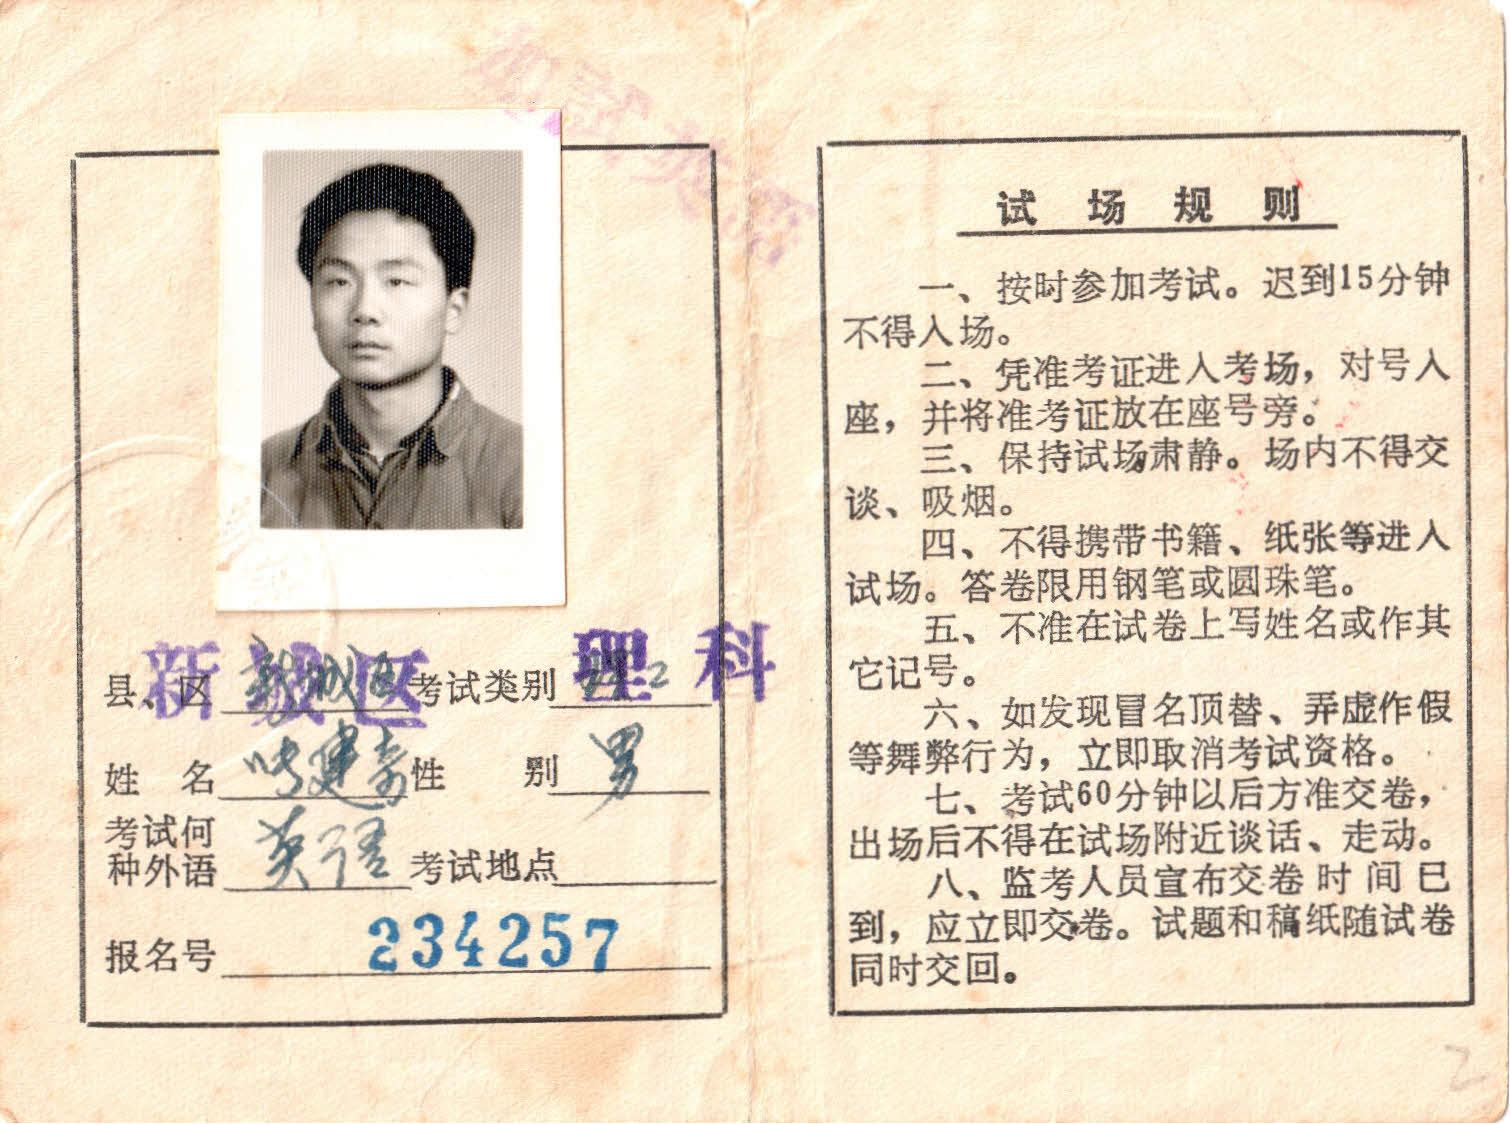 新城区
理科
县、区 新城区 考试类别 理工
姓 名 建 性 别 男
考试何种外语 英语 考试地点
报名号 234257
试场规则
一、按时参加考试。迟到15分钟
不得入场。
二、凭准考证进入考场，对号入
座，并将准考证放在座号旁。
三、保持试场肃静。场内不得交
谈、吸烟。
四、不得携带书籍、纸张等进入
试场。答卷限用钢笔或圆珠笔。
五、不准在试卷上写姓名或作其
它记号。
六、如发现冒名顶替、弄虚作假
等舞弊行为，立即取消考试资格。
七、考试60分钟以后方准交卷，
出场后不得在试场附近谈话、走动。
八、监考人员宣布交卷时间已
到，应立即交卷。试题和稿纸随试卷
同时交回。
2